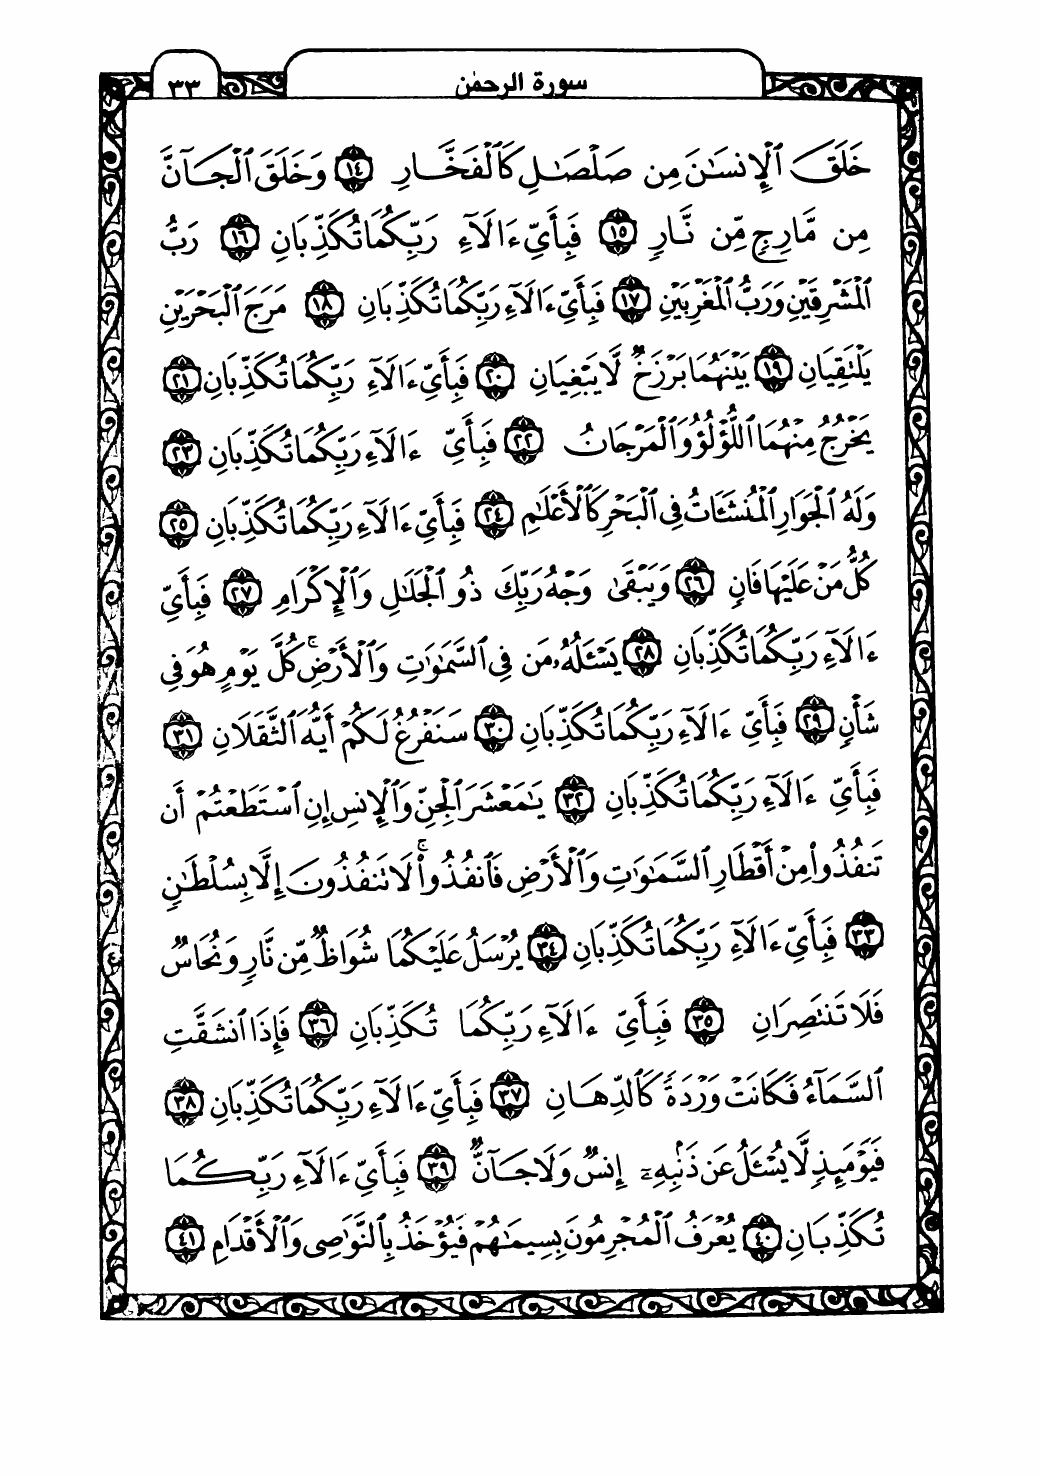 سورة الرحمٰن
٣٣
خَلَقَ ٱلْإِنسَـٰنَ مِن صَلْصَـٰلٍ كَٱلْفَخَّارِ ١٤ وَخَلَقَ ٱلْجَآنَّ
مِن مَّارِجٍ مِّن نَّارٍ ١٥ فَبِأَىِّ ءَالَآءِ رَبِّكُمَا تُكَذِّبَانِ ١٦ رَبُّ
ٱلْمَشْرِقَيْنِ وَرَبُّ ٱلْمَغْرِبَيْنِ ١٧ فَبِأَىِّ ءَالَآءِ رَبِّكُمَا تُكَذِّبَانِ ١٨ مَرَجَ ٱلْبَحْرَيْنِ
يَلْتَقِيَانِ ١٩ بَيْنَهُمَا بَرْزَخٌ لَّا يَبْغِيَانِ ٢٠ فَبِأَىِّ ءَالَآءِ رَبِّكُمَا تُكَذِّبَانِ ٢١
يَخْرُجُ مِنْهُمَا ٱللُّؤْلُؤُ وَٱلْمَرْجَانُ ٢٢ فَبِأَىِّ ءَالَآءِ رَبِّكُمَا تُكَذِّبَانِ ٢٣
وَلَهُ ٱلْجَوَارِ ٱلْمُنشَـَٔاتُ فِى ٱلْبَحْرِ كَٱلْأَعْلَـٰمِ ٢٤ فَبِأَىِّ ءَالَآءِ رَبِّكُمَا تُكَذِّبَانِ ٢٥
كُلُّ مَنْ عَلَيْهَا فَانٍ ٢٦ وَيَبْقَىٰ وَجْهُ رَبِّكَ ذُو ٱلْجَلَـٰلِ وَٱلْإِكْرَامِ ٢٧ فَبِأَىِّ
ءَالَآءِ رَبِّكُمَا تُكَذِّبَانِ ٢٨ يَسْـَٔلُهُۥ مَن فِى ٱلسَّمَـٰوَٰتِ وَٱلْأَرْضِ ۚ كُلَّ يَوْمٍ هُوَ فِى
شَأْنٍ ٢٩ فَبِأَىِّ ءَالَآءِ رَبِّكُمَا تُكَذِّبَانِ ٣٠ سَنَفْرُغُ لَكُمْ أَيُّهَ ٱلثَّقَلَانِ ٣١
فَبِأَىِّ ءَالَآءِ رَبِّكُمَا تُكَذِّبَانِ ٣٢ يَـٰمَعْشَرَ ٱلْجِنِّ وَٱلْإِنسِ إِنِ ٱسْتَطَعْتُمْ أَن
تَنفُذُوا۟ مِنْ أَقْطَارِ ٱلسَّمَـٰوَٰتِ وَٱلْأَرْضِ فَٱنفُذُوا۟ ۚ لَا تَنفُذُونَ إِلَّا بِسُلْطَـٰنٍ
٣٣ فَبِأَىِّ ءَالَآءِ رَبِّكُمَا تُكَذِّبَانِ ٣٤ يُرْسَلُ عَلَيْكُمَا شُوَاظٌ مِّن نَّارٍ وَنُحَاسٌ
فَلَا تَنتَصِرَانِ ٣٥ فَبِأَىِّ ءَالَآءِ رَبِّكُمَا تُكَذِّبَانِ ٣٦ فَإِذَا ٱنشَقَّتِ
ٱلسَّمَآءُ فَكَانَتْ وَرْدَةً كَٱلدِّهَانِ ٣٧ فَبِأَىِّ ءَالَآءِ رَبِّكُمَا تُكَذِّبَانِ ٣٨
فَيَوْمَئِذٍ لَّا يُسْـَٔلُ عَن ذَنۢبِهِۦٓ إِنسٌ وَلَا جَآنٌّ ٣٩ فَبِأَىِّ ءَالَآءِ رَبِّكُمَا
تُكَذِّبَانِ ٤٠ يُعْرَفُ ٱلْمُجْرِمُونَ بِسِيمَـٰهُمْ فَيُؤْخَذُ بِٱلنَّوَٰصِى وَٱلْأَقْدَامِ ٤١